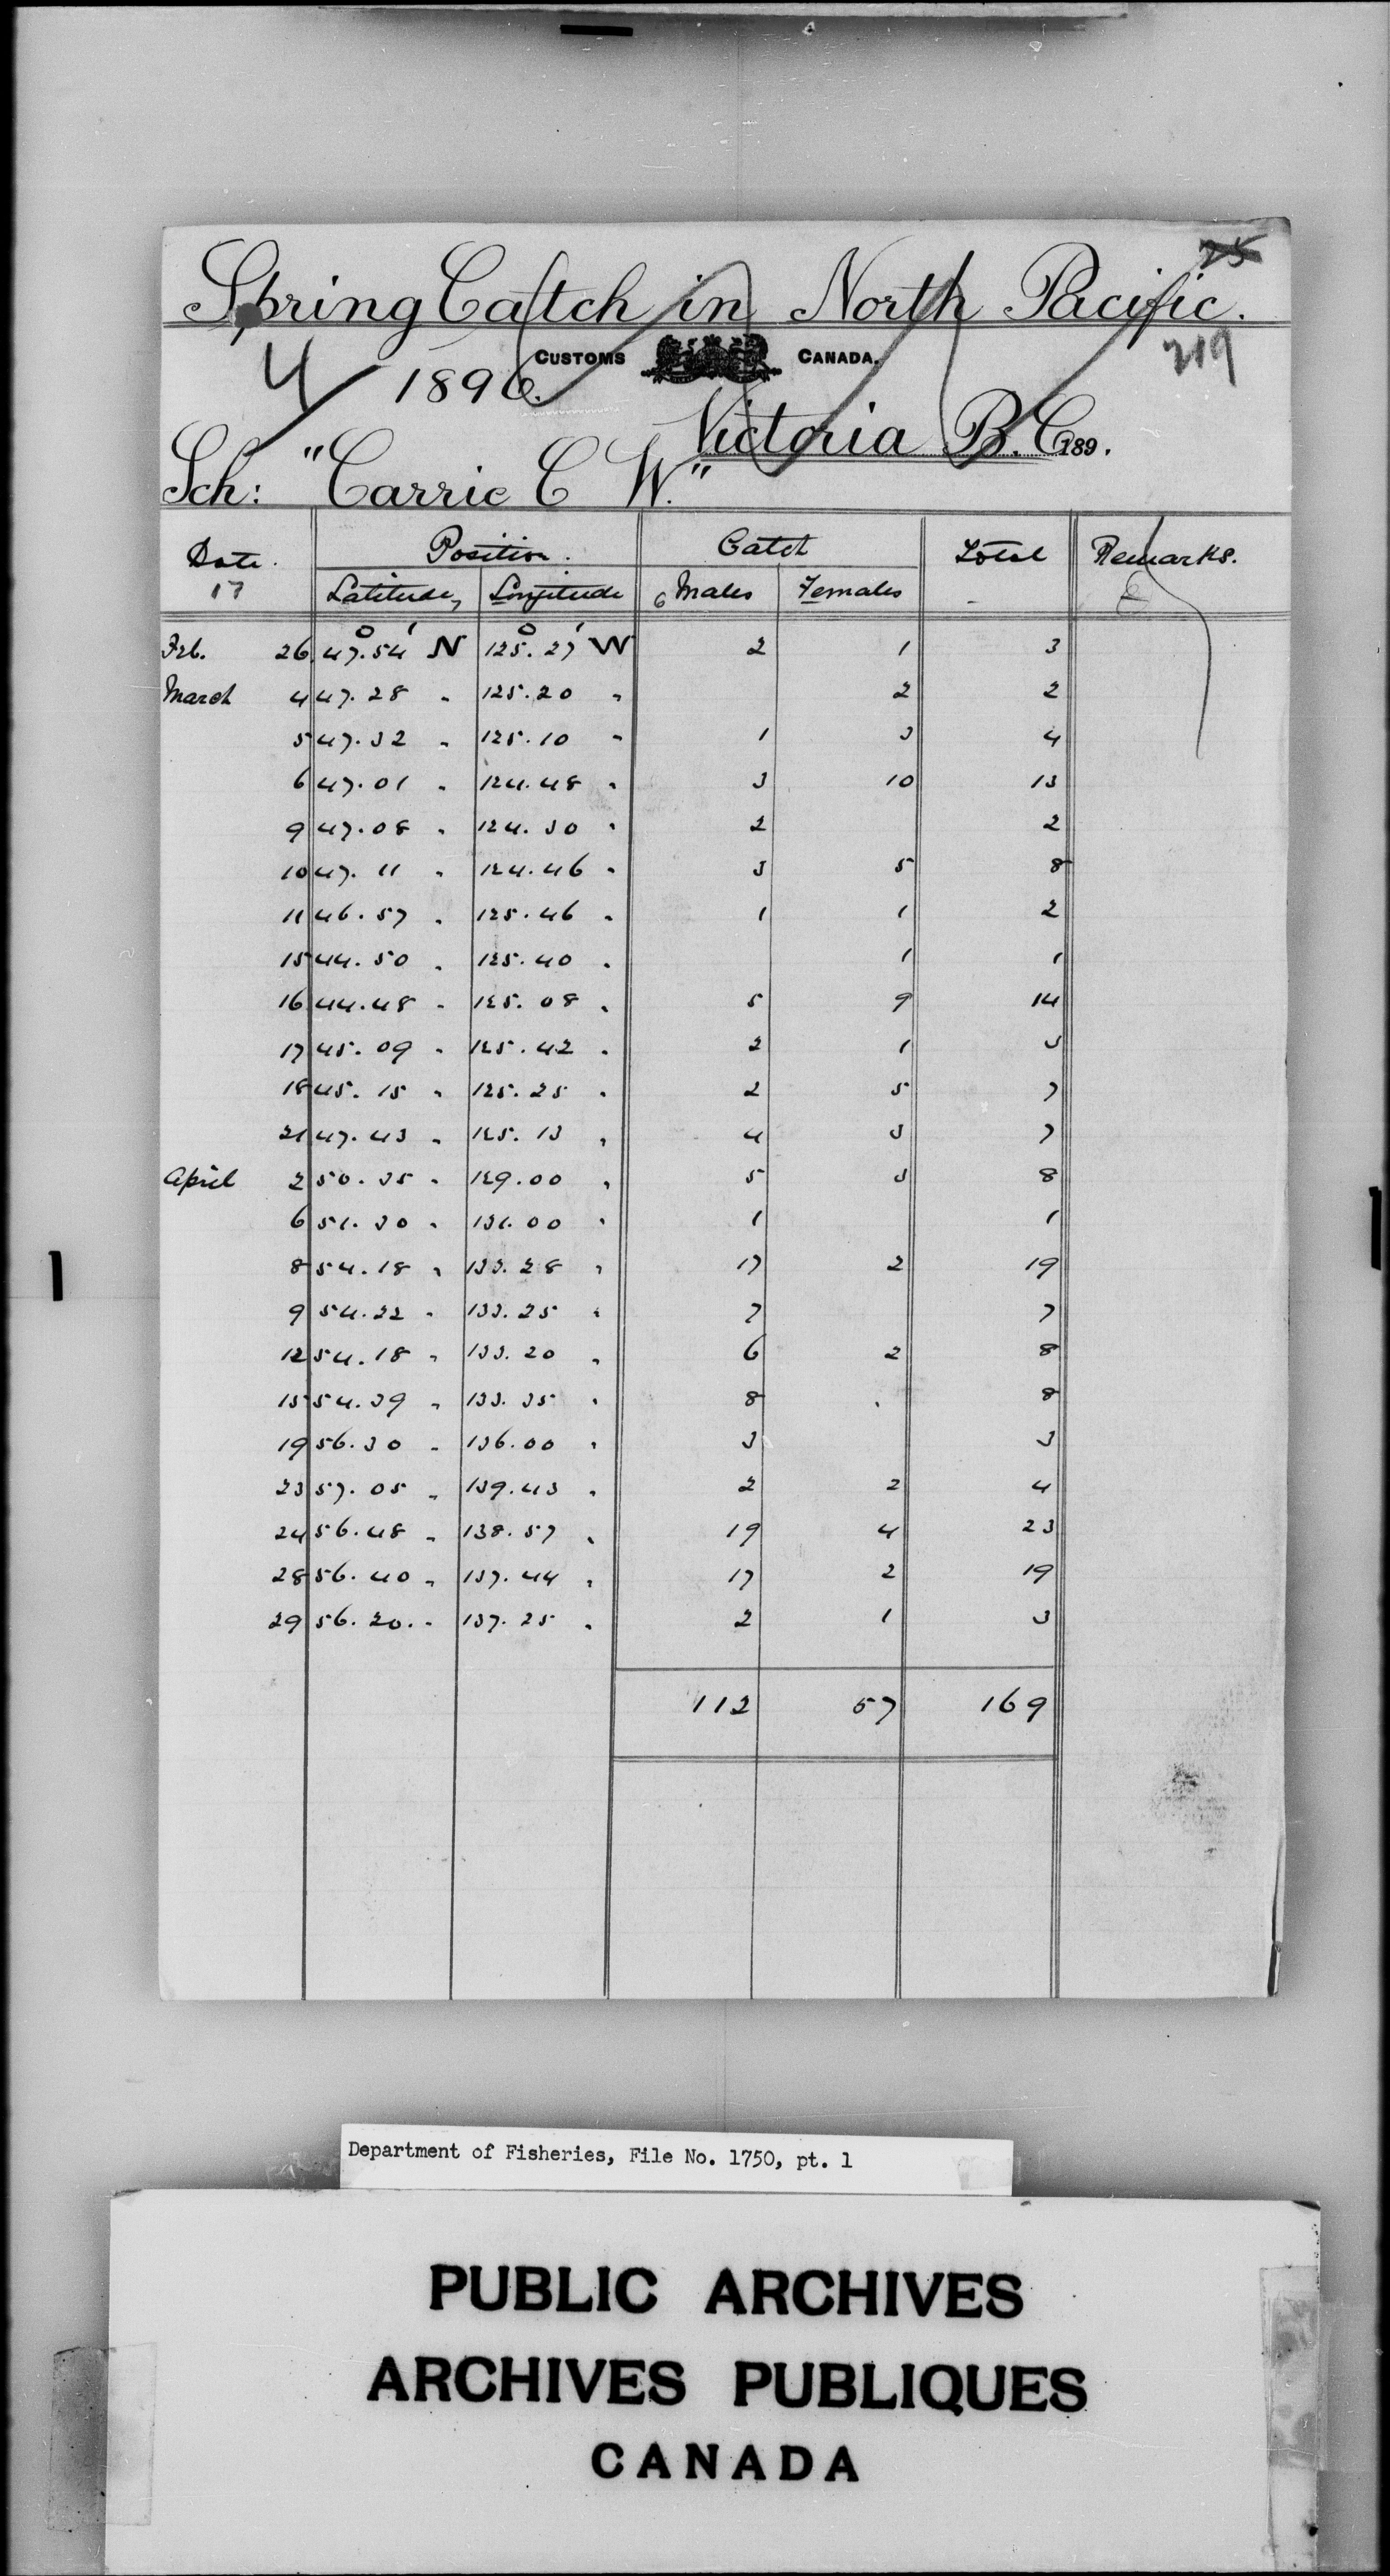 25
Spring Catch in North Pacific.
219
4 1896. CUSTOMS CANADA.
Victoria B.C. 189 .
Sch: "Carrie C W."
Date. Position. Catch Total Remarks.
17 Latitude, Longitude 6 Males Females
Feb. 26 47°.54' N 125°.27' W 2 1 3
March 4 47.28 " 125.20 " 2 2
5 47.32 " 125.10 " 1 3 4
6 47.01 " 124.48 " 3 10 13
9 47.08 " 124.30 " 2 2
10 47.11 " 124.46 " 3 5 8
11 46.57 " 125.46 " 1 1 2
15 44.50 " 125.40 " 1 1
16 44.48 " 125.08 " 5 9 14
17 45.09 " 125.42 " 2 1 3
18 45.15 " 125.25 " 2 5 7
21 47.43 " 125.13 " 4 3 7
April 2 50.35 " 129.00 " 5 3 8
6 51.30 " 131.00 " 1 1
8 54.18 " 133.28 " 17 2 19
9 54.22 " 133.25 " 7 7
12 54.18 " 133.20 " 6 2 8
15 54.39 " 133.35 " 8 8
19 56.30 " 136.00 " 3 3
23 57.05 " 139.43 " 2 2 4
24 56.48 " 138.57 " 19 4 23
28 56.40 " 137.44 " 17 2 19
29 56.20. " 137.25 " 2 1 3
112 57 169
Department of Fisheries, File No. 1750, pt. 1
PUBLIC ARCHIVES
ARCHIVES PUBLIQUES
CANADA